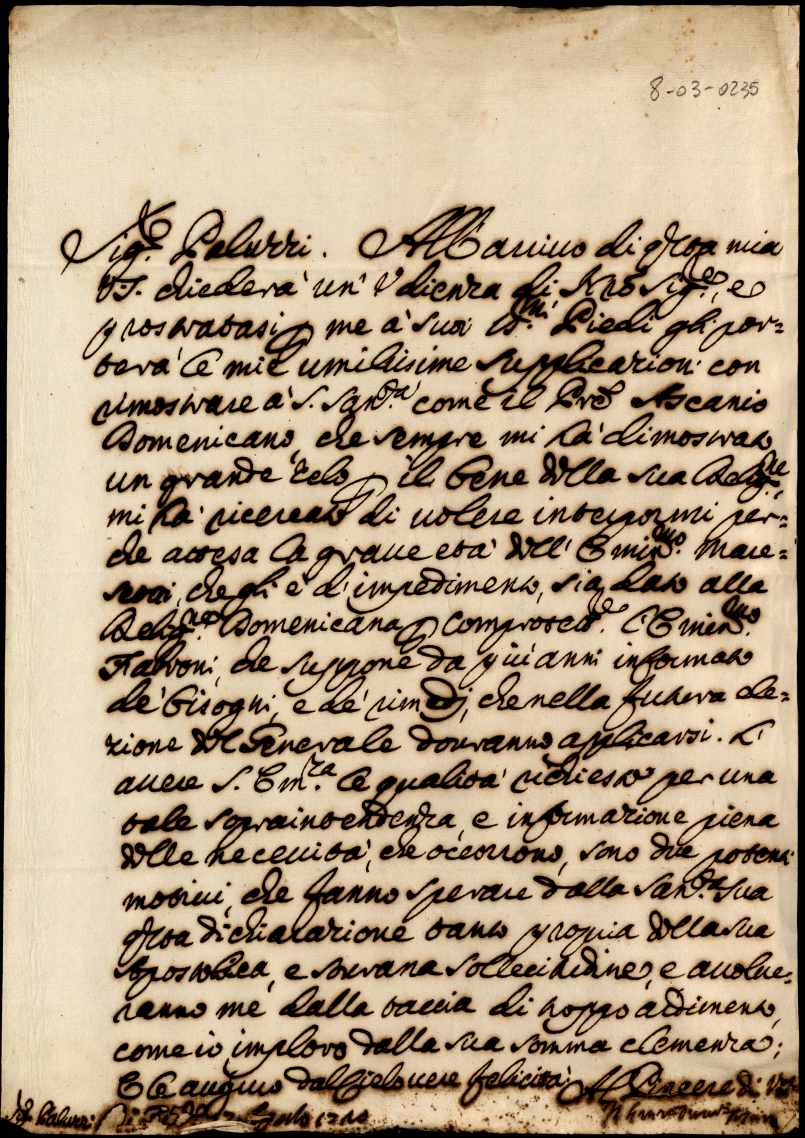 8-03-0235
Sig.e Paluzzi. All'arrivo di q.sta mia
V.S. chiederà un' Udienza di Nro Sig.re, e
prostratasi p me a' suoi SS.mi Piedi gli por=
terà le mie umilissime supplicazioni con
rimostrare a' S. San.tà come il Pre Ascanio
Domenicano, che sempre mi hà dimostrato
un grande zelo p il bene della sua Relig.ne
mi hà ricercato di volere interpormi per=
che attesa la grave età dell' Emin.mo Mare=
scotti, che gli è d'impedimento, sia dato alla
Relig.ne Domenicana p Comprotett.e l'Emin.mo
Fabroni, che suppone da più anni informato
de' bisogni, e de' rimedj, che nella futura ele=
zione del Generale dovranno applicarsi. L'
avere S. Em.za le qualità richieste per una
tale sopraintendenza, e informazione piena
delle necessità, che occorrono, sono due potenti
motivi, che fanno sperare dalla San.tà Sua
q.sta dichiarazione tanto propria della sua
Apostolica, e sovrana sollecitudine, e assolve=
ranno me dalla taccia di troppo ardimento,
come io imploro dalla sua somma clemenza;
E le auguro dal Cielo vere felicità. Al Piacere di VS
Sig. Paluzzi Di